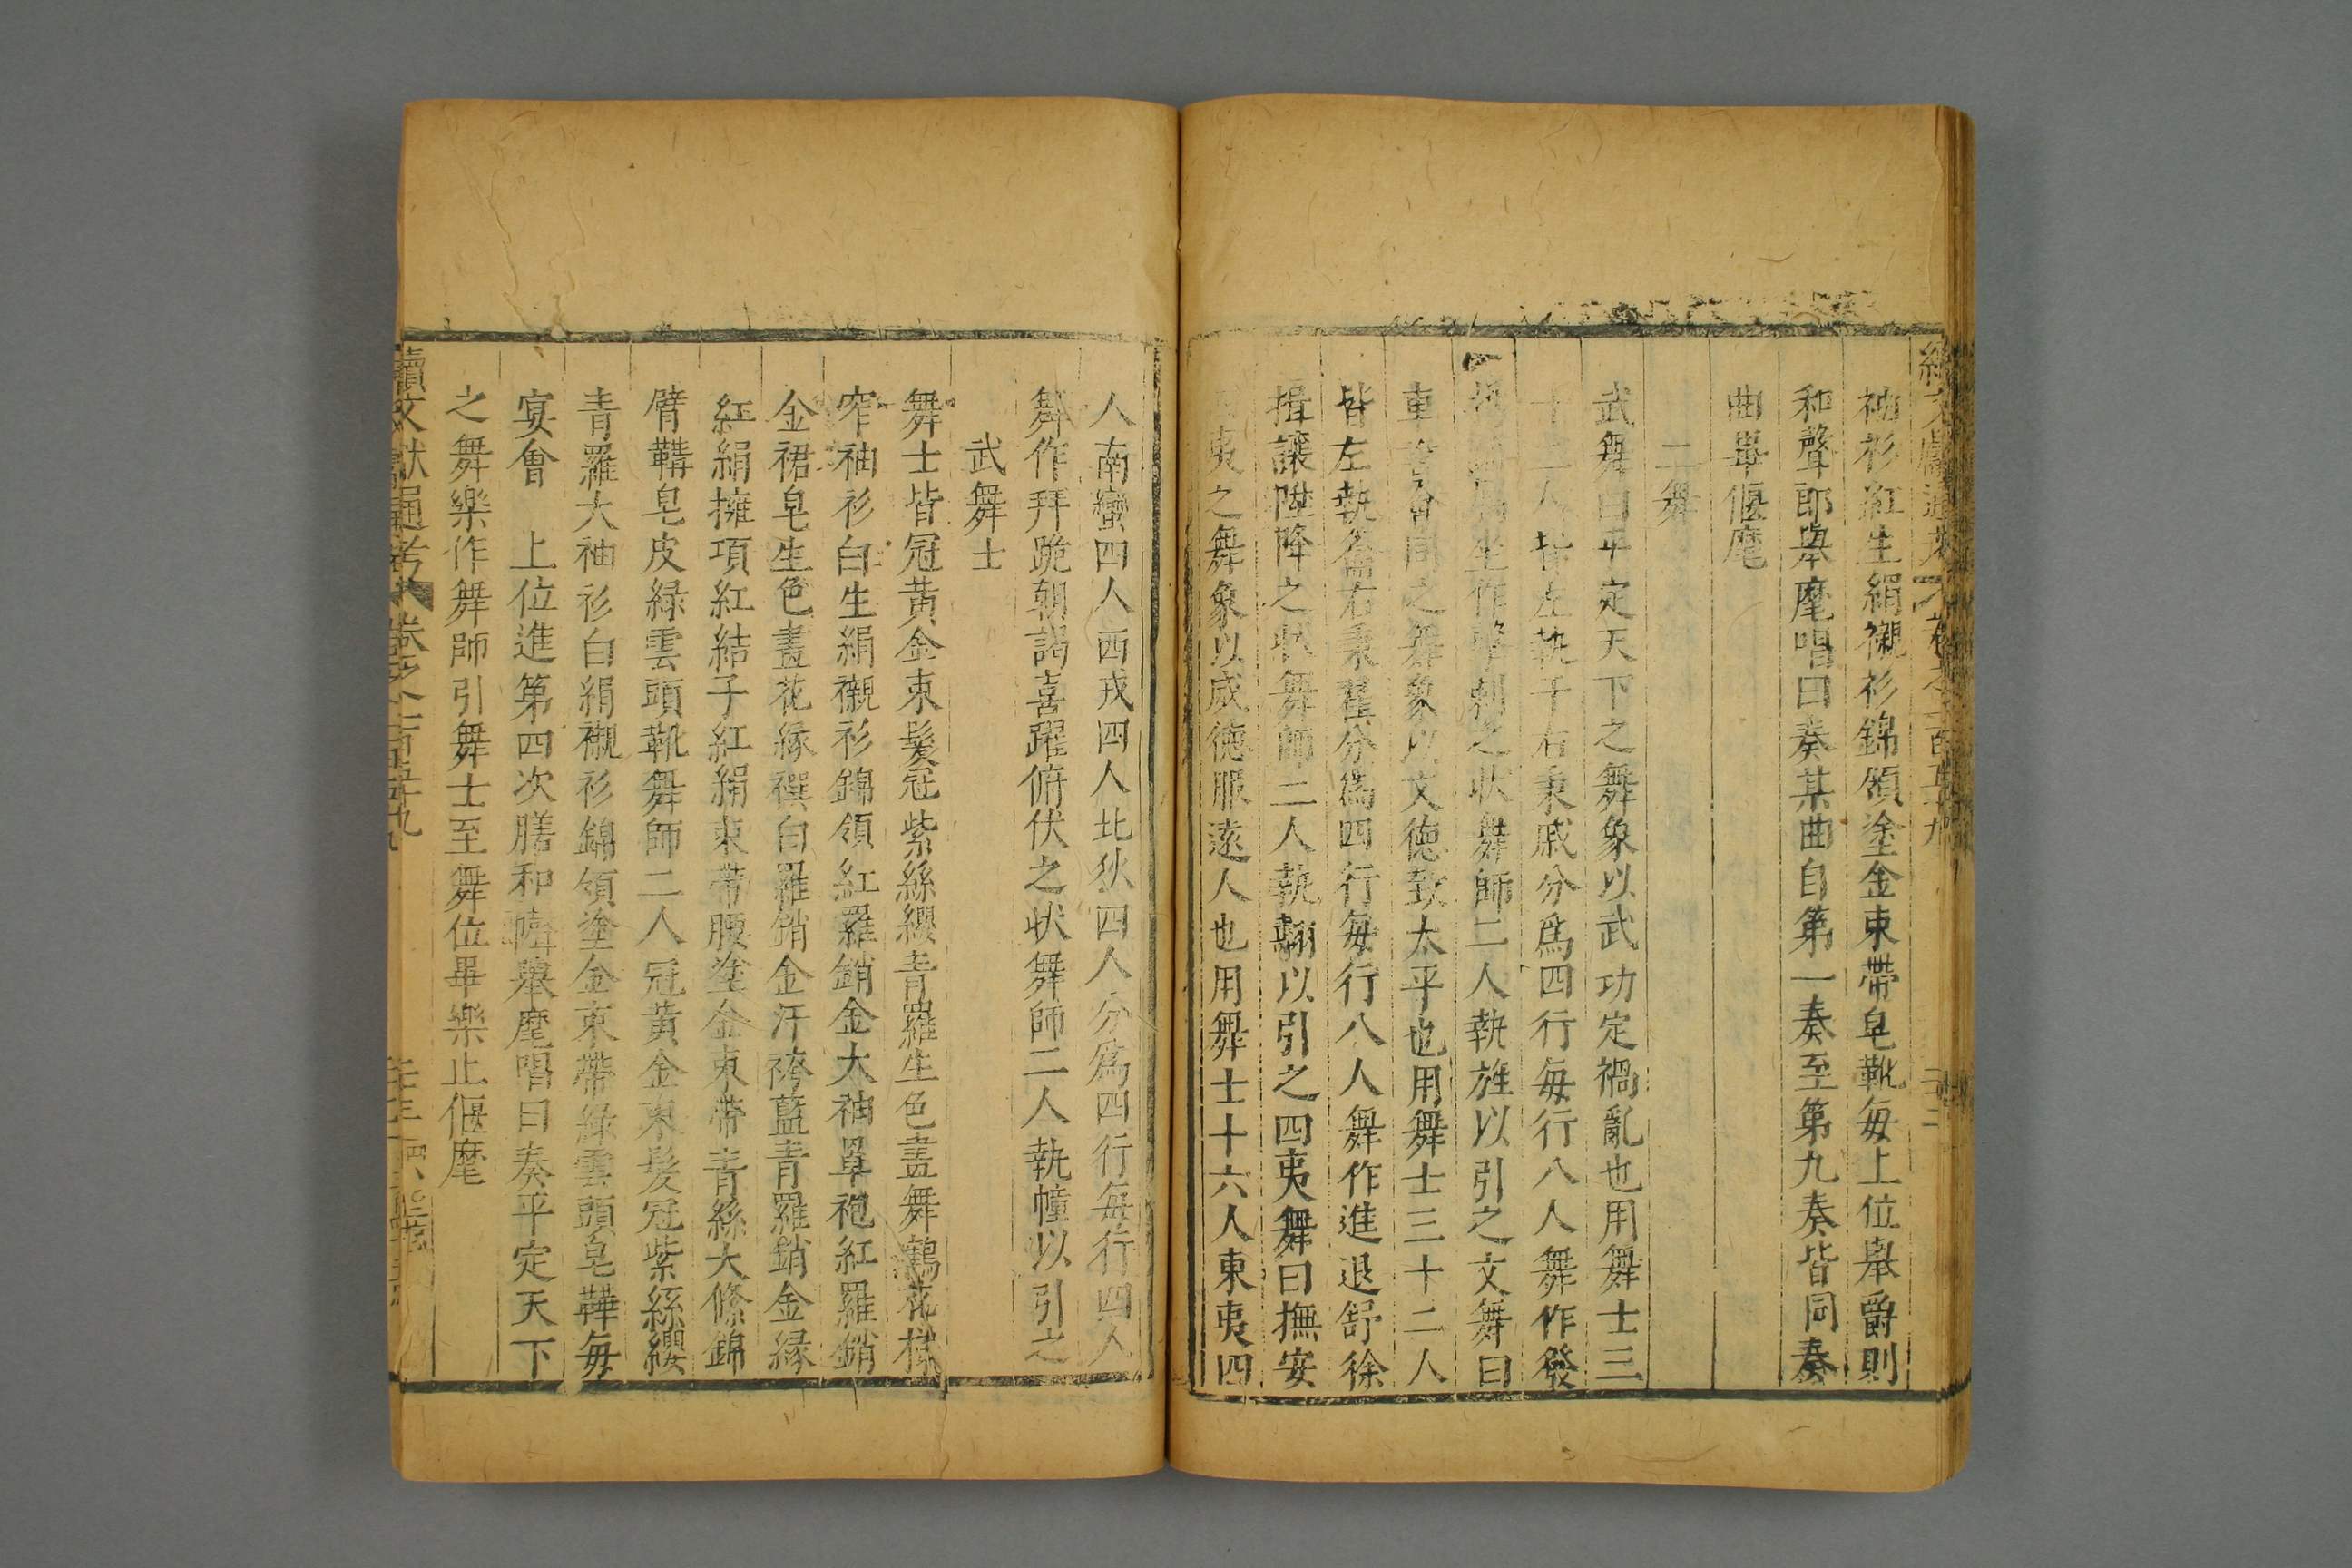 袖衫紅生絹襯衫錦領塗金束帶皂靴每上位舉爵則
和聲郎舉麾唱曰奏某曲自第一奏至第九奏皆同奏
曲畢偃麾
二舞
武舞曰平定天下之舞象以武功定禍亂也用舞士三
十二人皆左執干右秉戚分爲四行每行八人舞作發
坐作擊刺之狀舞師二人執旌以引之文舞曰
車書會同之舞象以文德致太平也用舞士三十二人
皆左執籥右秉翟分爲四行每行八人舞作進退舒徐
揖讓陞降之狀舞師二人執翿以引之四夷舞曰撫安
夷之舞象以威德服遠人也用舞士十六人東夷四
人南蠻四人西戎四人北狄四人分爲四行每行四人
舞作拜跪朝謁喜躍俯伏之狀舞師二人執幢以引之
武舞士
舞士皆冠黃金束髮冠紫絲纓青羅生色畫舞鶴花樣
窄袖衫白生絹襯衫錦領紅羅銷金大袖罩袍紅羅銷
金裙皂生色畫花緣襈白羅銷金汗袴藍青羅銷金緣
紅絹擁項紅結子紅絹束帶腰塗金束帶青絲大絛錦
臂鞲皂皮綠雲頭靴舞師二人冠黃金束髮冠紫絲纓
青羅大袖衫白絹襯衫錦領塗金束帶綠雲頭皂鞾每
宴會　上位進第四次膳和聲舉麾唱曰奏平定天下
之舞樂作舞師引舞士至舞位畢樂止偃麾
續文獻通考　卷之一百五十九